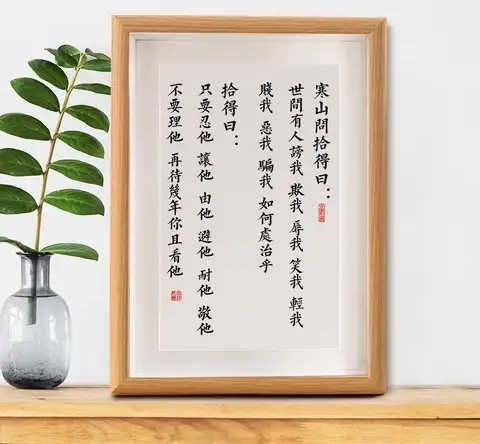 寒山問拾得曰：
世間有人謗我 欺我 辱我 笑我 輕我
賤我 惡我 騙我 如何處治乎
拾得曰：
只要忍他 讓他 由他 避他 耐他 敬他
不要理他 再待幾年你且看他